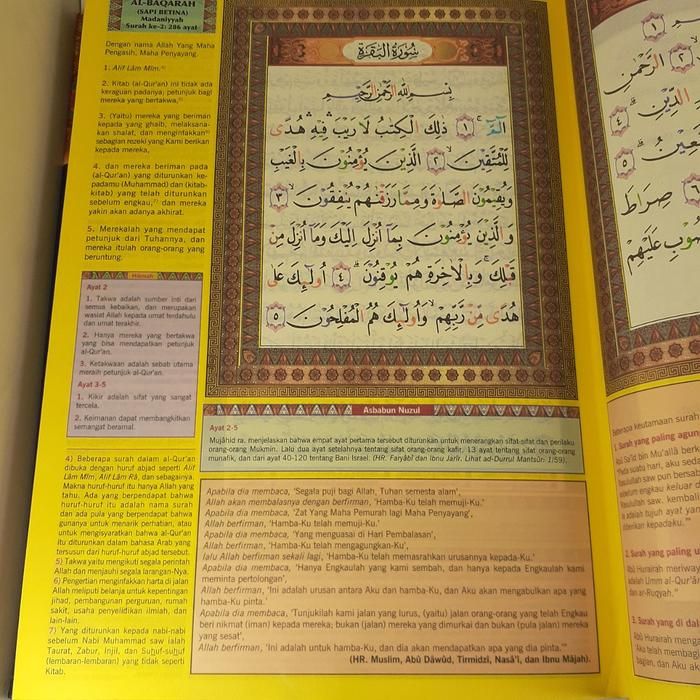 AL-BAQARAH
(SAPI BETINA)
Madaniyyah
Surah ke-2: 286 ayat
Dengan nama Allah Yang Maha
Pengasih, Maha Penyayang.
1. Alif Lâm Mîm.
2. Kitab (al-Qur'an) ini tidak ada
keraguan padanya; petunjuk bagi
mereka yang bertakwa,5)
3. (Yaitu) mereka yang beriman
kepada yang ghaib, melaksana-
kan shalat, dan menginfakkan6)
sebagian rezeki yang Kami berikan
kepada mereka,
4. dan mereka beriman pada
(al-Qur'an) yang diturunkan ke-
padamu (Muhammad) dan (kitab-
kitab) yang telah diturunkan
sebelum engkau,7) dan mereka
yakin akan adanya akhirat.
5. Merekalah yang mendapat
petunjuk dari Tuhannya, dan
mereka itulah orang-orang yang
beruntung.
Hikmah
Ayat 2
1. Takwa adalah sumber inti dari
semua kebaikan, dan merupakan
wasiat Allah kepada umat terdahulu
dan umat terakhir.
2. Hanya mereka yang bertakwa
yang bisa mendapatkan petunjuk
al-Qur'an.
3. Ketakwaan adalah sebab utama
meraih petunjuk al-Qur'an.
Ayat 3-5
1. Kikir adalah sifat yang sangat
tercela.
2. Keimanan dapat membangkitkan
semangat beramal.
4) Beberapa surah dalam al-Qur'an
dibuka dengan huruf abjad seperti Alif
Lâm Mîm, Alif Lâm Râ, dan sebagainya.
Makna huruf-huruf itu hanya Allah yang
tahu. Ada yang berpendapat bahwa
huruf-huruf itu adalah nama surah
dan ada pula yang berpendapat bahwa
gunanya untuk menarik perhatian, atau
untuk mengisyaratkan bahwa al-Qur'an
itu diturunkan dalam bahasa Arab yang
tersusun dari huruf-huruf abjad tersebut.
5) Takwa yaitu mengikuti segala perintah
Allah dan menjauhi segala larangan-Nya.
6) Pengertian menginfakkan harta di jalan
Allah meliputi belanja untuk kepentingan
jihad, pembangunan perguruan, rumah
sakit, usaha penyelidikan ilmiah, dan
lain-lain.
7) Yang diturunkan kepada nabi-nabi
sebelum Nabi Muhammad saw ialah
Taurat, Zabur, Injil, dan Suhuf-suhuf
(lembaran-lembaran) yang tidak seperti
Kitab.
سُوْرَةُ الْبَقَرَةِ
بِسْمِ اللّٰهِ الرَّحْمٰنِ الرَّحِيْمِ
الۤمّۤ ۚ ۝١ ذٰلِكَ الْكِتٰبُ لَا رَيْبَ ۛ فِيْهِ ۛ هُدًى
لِّلْمُتَّقِيْنَ ۙ ۝٢ الَّذِيْنَ يُؤْمِنُوْنَ بِالْغَيْبِ
وَيُقِيْمُوْنَ الصَّلٰوةَ وَمِمَّا رَزَقْنٰهُمْ يُنْفِقُوْنَ ۙ ۝٣
وَالَّذِيْنَ يُؤْمِنُوْنَ بِمَآ اُنْزِلَ اِلَيْكَ وَمَآ اُنْزِلَ مِنْ
قَبْلِكَ ۚ وَبِالْاٰخِرَةِ هُمْ يُوْقِنُوْنَ ۗ ۝٤ اُولٰۤىِٕكَ عَلٰى
هُدًى مِّنْ رَّبِّهِمْ ۙ وَاُولٰۤىِٕكَ هُمُ الْمُفْلِحُوْنَ ۝٥
Asbabun Nuzul
Ayat 2-5
Mujâhid ra. menjelaskan bahwa empat ayat pertama tersebut diturunkan untuk menerangkan sifat-sifat dan perilaku
orang-orang Mukmin. Lalu dua ayat setelahnya tentang orang-orang kafir, 13 ayat tentang sifat orang-orang
munafik, dan dari ayat 40-120 tentang Bani Israel. (HR. Faryâbî dan Ibnu Jarîr. Lihat ad-Durrul Mantsûr: 1/59).
Apabila dia membaca, 'Segala puji bagi Allah, Tuhan semesta alam',
Allah akan membalasnya dengan berfirman, 'Hamba-Ku telah memuji-Ku.'
Apabila dia membaca, 'Zat Yang Maha Pemurah lagi Maha Penyayang',
Allah berfirman, 'Hamba-Ku telah memuji-Ku.'
Apabila dia membaca, 'Yang menguasai di Hari Pembalasan',
Allah berfirman, 'Hamba-Ku telah mengagungkan-Ku',
lalu Allah berfirman sekali lagi, 'Hamba-Ku telah memasrahkan urusannya kepada-Ku.'
Apabila dia membaca, 'Hanya Engkaulah yang kami sembah, dan hanya kepada Engkaulah kami
meminta pertolongan',
Allah berfirman, 'Ini adalah urusan antara Aku dan hamba-Ku, dan Aku akan mengabulkan apa yang
hamba-Ku pinta.'
Apabila dia membaca, 'Tunjukilah kami jalan yang lurus, (yaitu) jalan orang-orang yang telah Engkau
beri nikmat (iman) kepada mereka; bukan (jalan) mereka yang dimurkai dan bukan (pula jalan) mereka
yang sesat',
Allah berfirman, 'Ini adalah untuk hamba-Ku, dan dia akan mendapatkan apa yang dia pinta.'"
(HR. Muslim, Abû Dâwûd, Tirmidzî, Nasâ'î, dan Ibnu Mâjah).
الرَّحْمٰنِ
الدِّيْنِ
صِرَاطَ
عَلَيْهِمْ
Beberapa keutamaan surah
1. Surah yang paling agun
Abû Sa'îd bin Mu'allâ berk
"Pada suatu hari, aku seda
Rasulullah saw pun bersab
sebelum engkau keluar d
Rasulullah saw. kembal
diberikan kepadaku."
2. Surah yang paling u
Abû Hurairah meriway
adalah Umm al-Qur'ân
dan ar-Ruqyah."
3. Surah yang di dal
Abû Hurairah menga
"Aku telah membagi
bagian, dan Aku ak